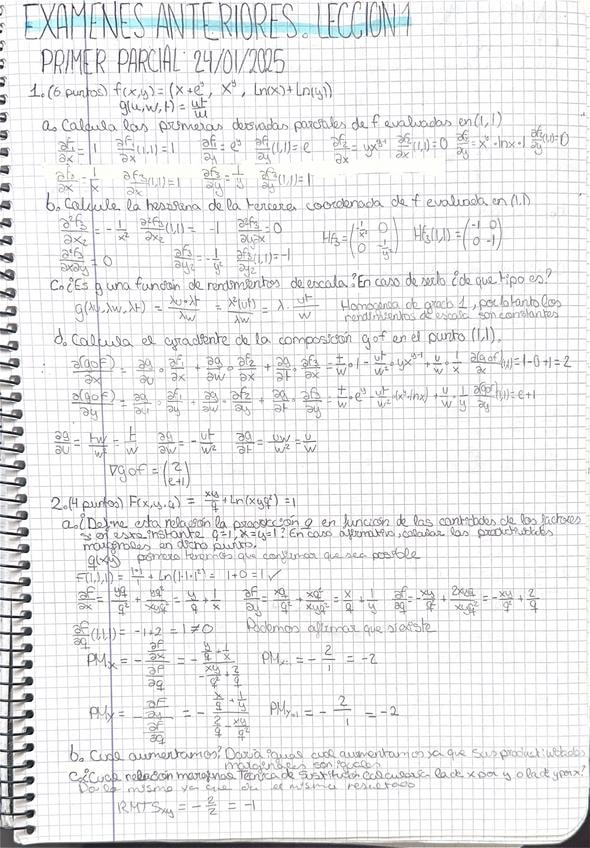 EXAMENES ANTERIORES. LECCION 1
PRIMER PARCIAL: 24/01/2025
1. (6 puntos) f(x,y) = (x+e^y, x^y, ln(x)+ln(y))
g(u,w,t) = ut/w
a. Calcula las primeras derivadas parciales de f evaluadas en (1,1)
∂f₁/∂x = 1 ∂f₁/∂x (1,1) = 1 ∂f₁/∂y = e^y ∂f₁/∂y (1,1) = e ∂f₂/∂x = yx^(y-1) ∂f₂/∂x (1,1) = 0 ∂f₂/∂y = x^y · lnx · 1 ∂f₂/∂y (1,1) = 0
∂f₃/∂x = 1/x ∂f₃/∂x (1,1) = 1 ∂f₃/∂y = 1/y ∂f₃/∂y (1,1) = 1
b. Calcule la hessiana de la tercera coordenada de f evaluada en (1,1)
∂²f₃/∂x₂ = -1/x² ∂²f₃/∂x₂ (1,1) = -1 ∂²f₃/∂y∂x = 0 Hf₃ = (-1/x² 0 / 0 -1/y²) Hf₃(1,1) = (-1 0 / 0 -1)
∂²f₃/∂x∂y = 0 ∂²f₃/∂y₂ = -1/y² ∂²f₃/∂y₂ (1,1) = -1
c. ¿Es g una función de rendimientos de escala? En caso de serlo ¿de que tipo es?
g(λu, λw, λt) = λu·λt/λw = λ²(ut)/λw = λ · ut/w Homogenea de grado 1, por lo tanto los
rendimientos de escala son constantes
d. Calcula el gradiente de la composición gof en el punto (1,1).
∂(gof)/∂x = ∂g/∂u · ∂f₁/∂x + ∂g/∂w · ∂f₂/∂x + ∂g/∂t · ∂f₃/∂x = t/w · 1 - ut/w² · yx^(y-1) + u/w · 1/x ∂(gof)/∂x (1,1) = 1-0+1 = 2
∂(gof)/∂y = ∂g/∂u · ∂f₁/∂y + ∂g/∂w ∂f₂/∂y + ∂g/∂t · ∂f₃/∂y = t/w · e^y - ut/w² · (x^y · lnx) + u/w · 1/y ∂(gof)/∂y (1,1) = e+1
∂g/∂u = tw/w² = t/w ∂g/∂w = -ut/w² ∂g/∂t = uw/w² = u/w
∇gof = (2 / e+1)
2. (4 puntos) F(x,y,q) = xy/q + ln(xyq²) = 1
a. ¿Define esta relación la producción q en función de las cantidades de los factores
si en este instante q=1, x=y=1? En caso afirmativo, calcular las productividades
marginales en dicho punto.
q(x,y) primero tenemos que confirmar que sea posible
F(1,1,1) = 1·1/1 + ln(1·1·1²) = 1+0 = 1 ✓
∂F/∂x = yq/q² + yq²/xyq² = y/q + 1/x ∂F/∂y = xq/q² + xq²/xyq² = x/q + 1/y ∂F/∂q = -xy/q² + 2xyq/xyq² = -xy/q² + 2/q
∂F/∂q (1,1,1) = -1+2 = 1 ≠ 0 Podemos afirmar que si existe
PMx = - (∂F/∂x)/(∂F/∂q) = - (y/q + 1/x)/(-xy/q² + 2/q) PMx₌₁ = - 2/1 = -2
PMy = - (∂F/∂y)/(∂F/∂q) = - (x/q + 1/y)/(2/q - xy/q²) PMy₌₁ = - 2/1 = -2
b. Cual aumentamos? Daria igual cual aumentamos ya que sus productividades
marginales son iguales
c. ¿Cual relación marginal Tecnica de Sustitución calcularía la de x por y o la de y por x?
Da lo mismo ya que da el mismo resultado
RMTSxy = -2/2 = -1